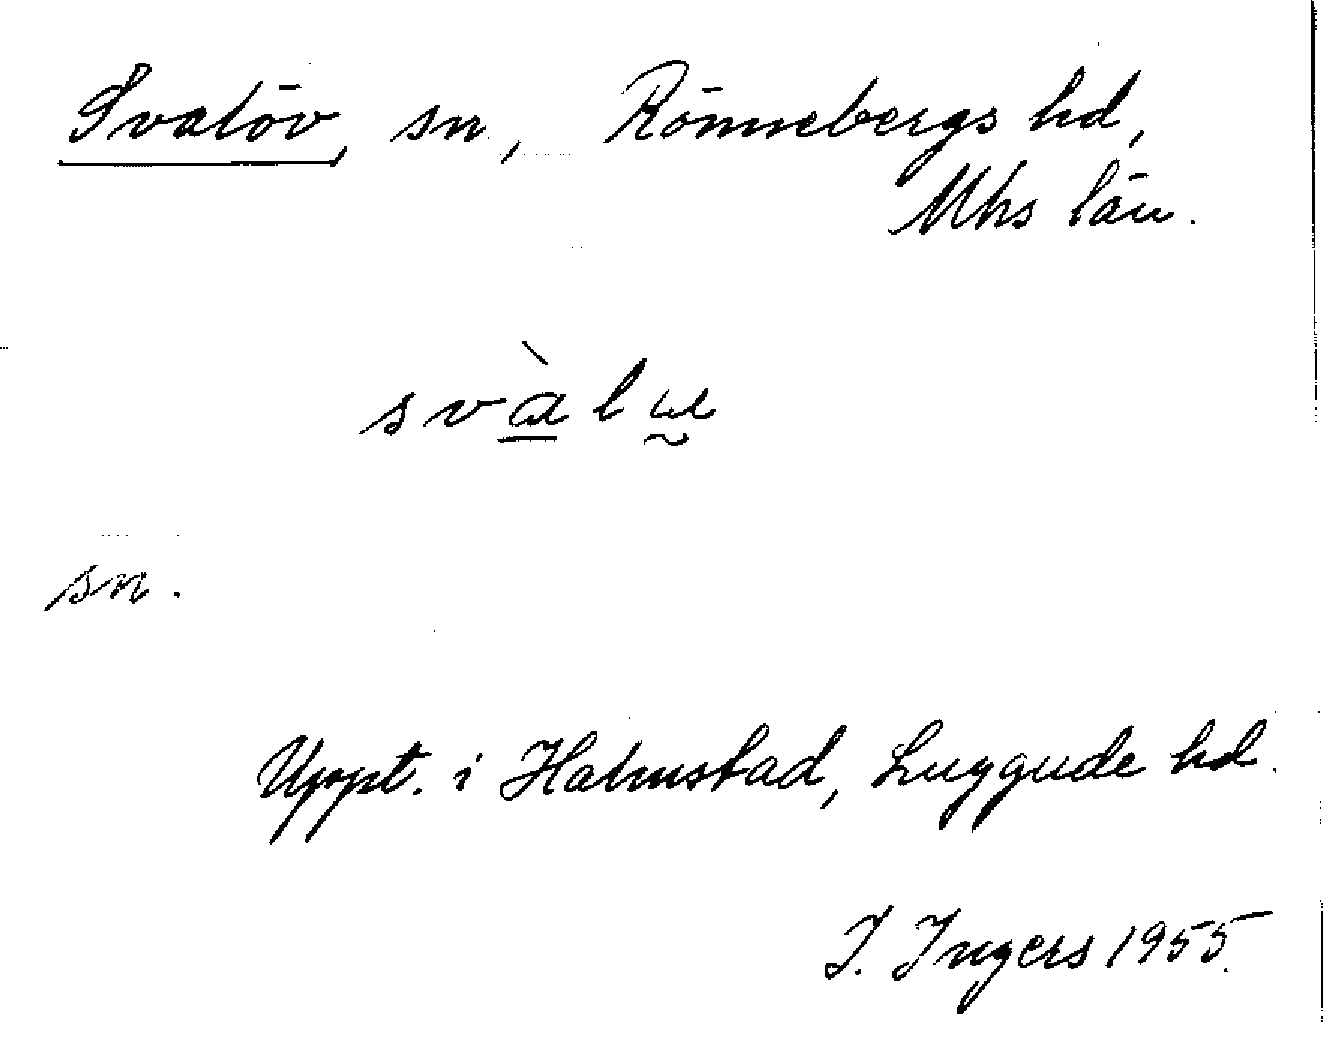 Svalöv, sn, Rönnebergs hd,
Mhs län.
svàlɯ
sn.
Uppt. i Halmstad, Luggude hd.
I. Ingers 1955.